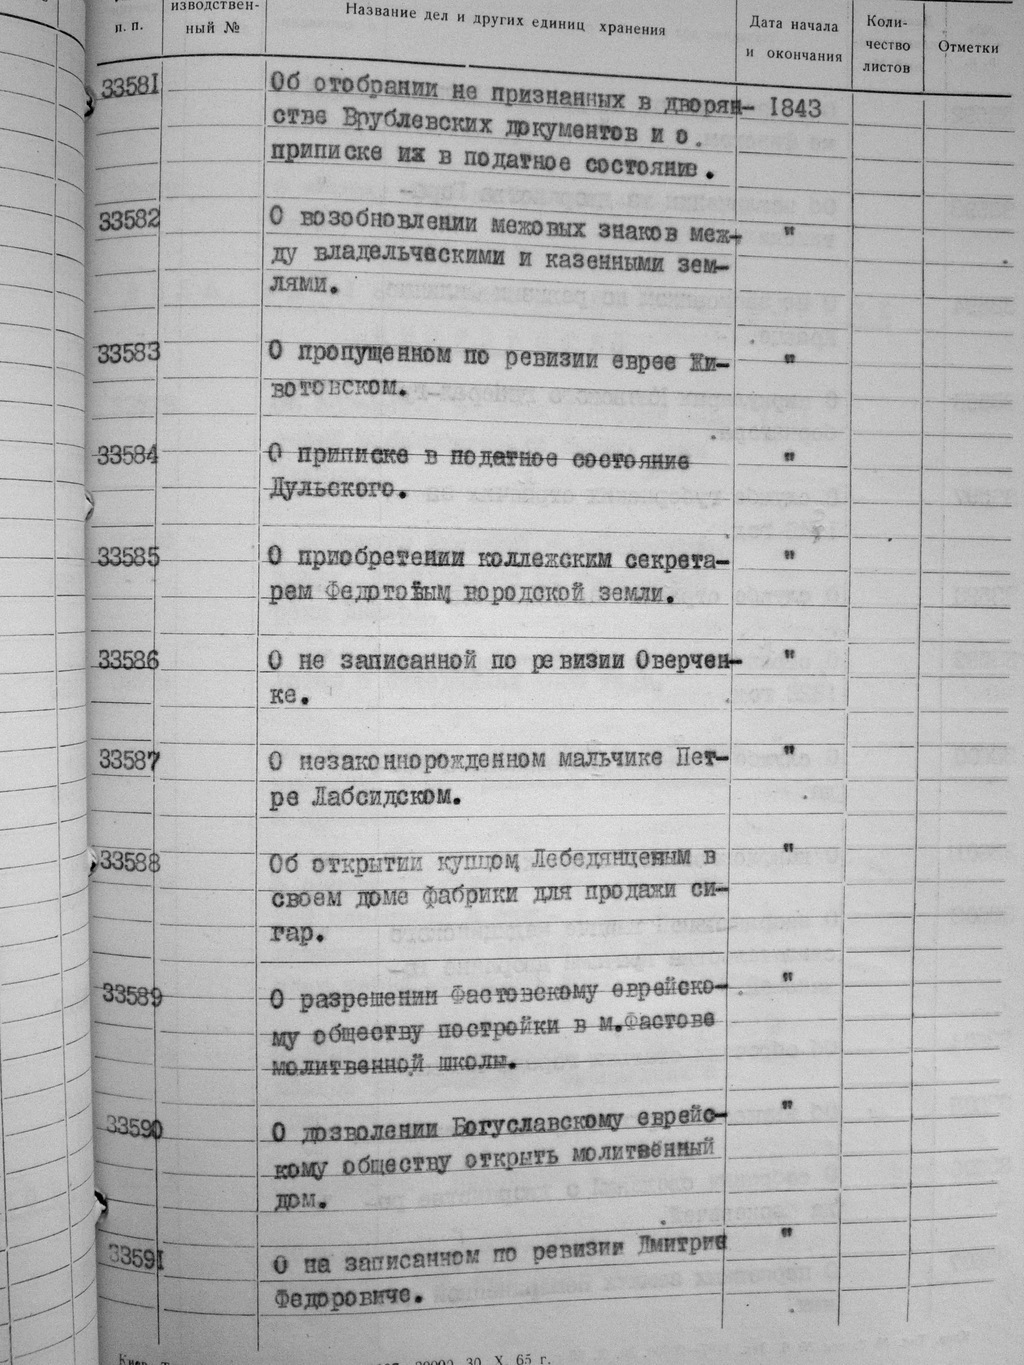 п. п.
изводствен-
ный №
Название дел и других единиц хранения
Дата начала
и окончания
Коли-
чество
листов
Отметки
33581 Об отобрании не признанных в дворян- 1843
стве Врублевских документов и о
приписке их в податное состояние.
33582 О возобновлении межовых знаков меж- "
ду владельческими и казенными зем-
лями.
33583 О пропущенном по ревизии еврее Жи- "
вотовском.
33584 О приписке в податное состояние "
Дульского.
33585 О приобретении коллежским секрета- "
рем Федотовым городской земли.
33586 О не записанной по ревизии Оверчен- "
ке.
33587 О незаконнорожденном мальчике Пет- "
ре Лабсидском.
33588 Об открытии купцом Лебедянцевым в "
своем доме фабрики для продажи си-
гар.
33589 О разрешении Фастовскому еврейско- "
му обществу постройки в м.Фастове
молитвенной школы.
33590 О дозволении Богуславскому еврейс- "
кому обществу открыть молитвенный
дом.
33591 О на записанном по ревизии Дмитрие "
Федоровиче.
30. X. 65 г.